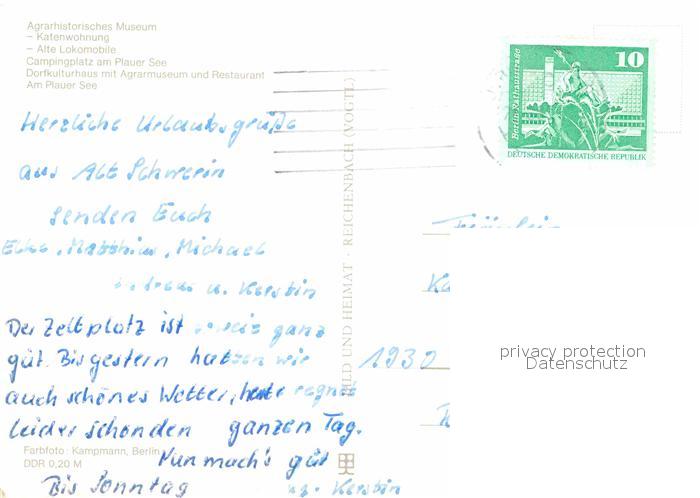 Agrarhistorisches Museum
– Katenwohnung
– Alte Lokomobile
Campingplatz am Plauer See
Dorfkulturhaus mit Agrarmuseum und Restaurant
Am Plauer See
Berlin, Rathausstraße
10
DEUTSCHE DEMOKRATISCHE REPUBLIK
Herzliche Urlaubsgrüße
aus Alt Schwerin
senden Euch
Elke, Matthias, Michael
Andreas u. Kerstin
Der Zeltplatz ist soweit ganz
gut. Bis gestern hatten wir
auch schönes Wetter, heute regnet
leider schon den ganzen Tag.
Nun mach's gut
Bis Sonntag
Kerstin
BILD UND HEIMAT · REICHENBACH (VOGTL)
Fräulein
1930
privacy protection
Datenschutz
Farbfoto: Kampmann, Berlin
DDR 0,20 M